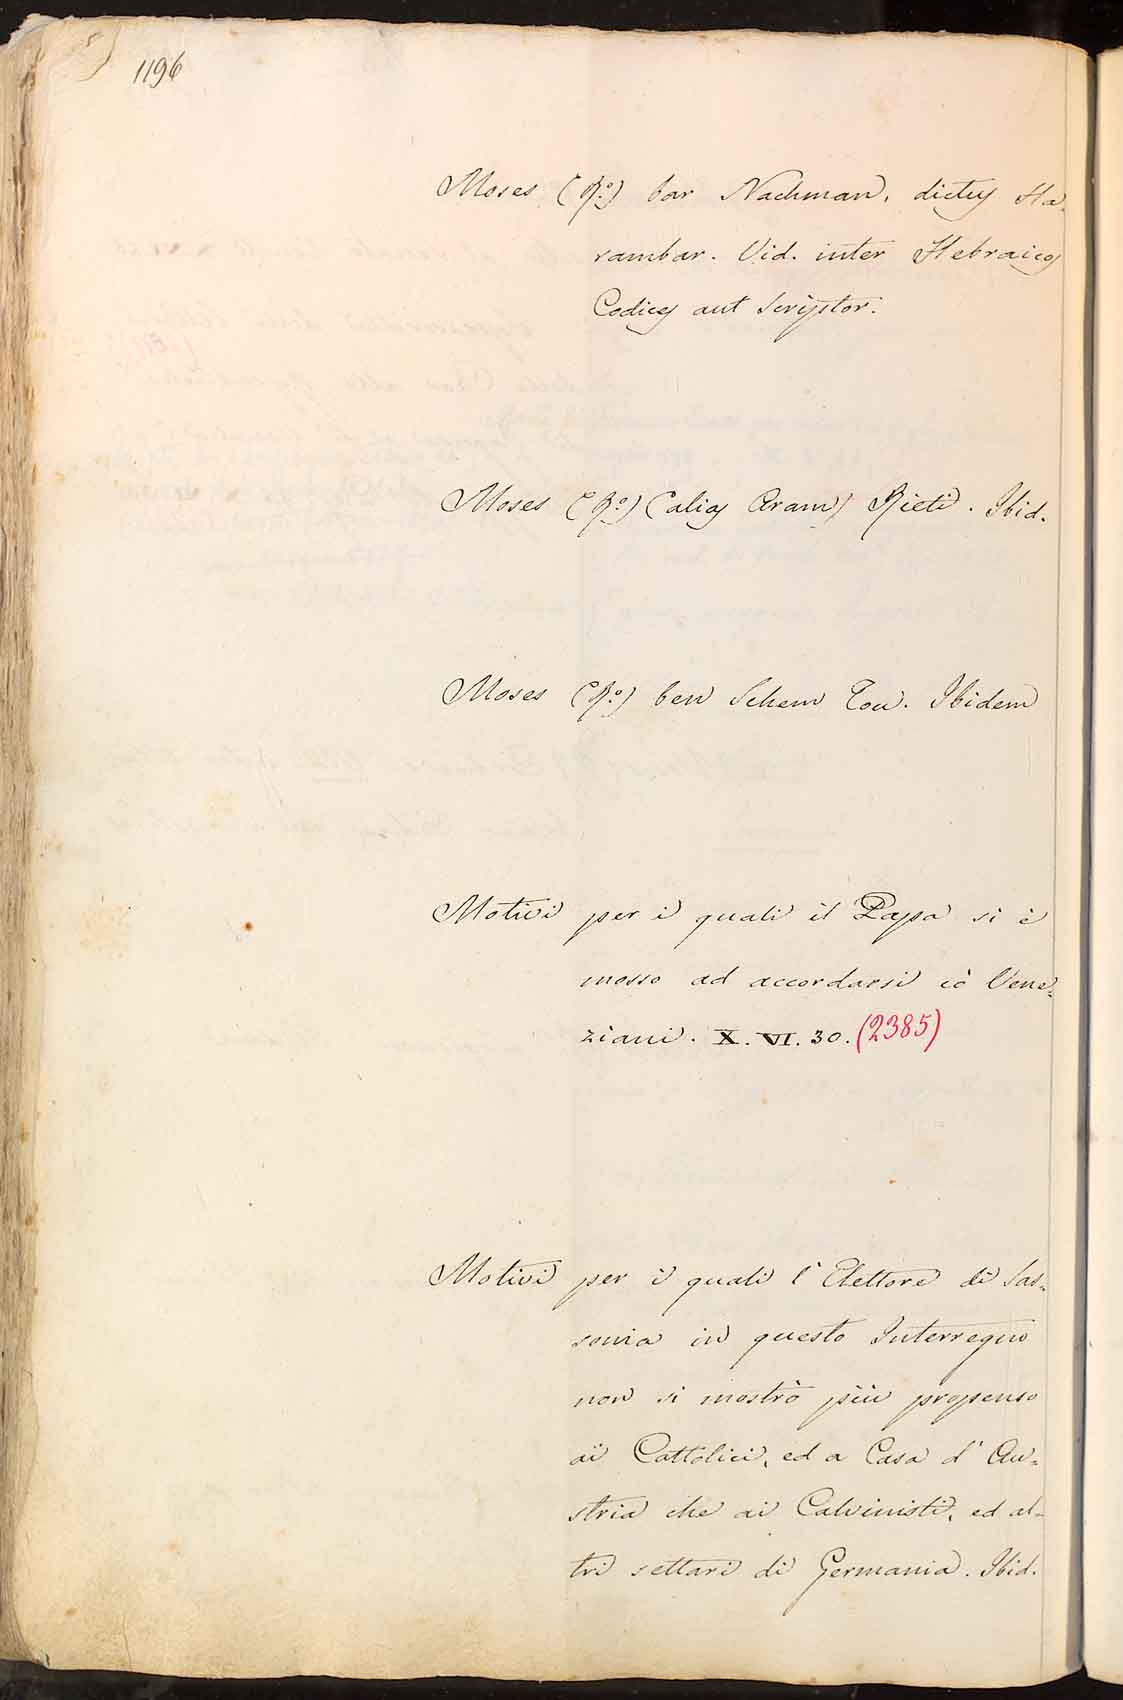 1196
Moses (R.º) bar Nachman, dictus Ha-
rambar. Vid. inter Hebraicos
Codices aut Scriptor.
Moses (R.º) (alias Aram) Rieti. Ibid.
Moses (R.º) ben Schem Tou. Ibidem
Motivi per i quali il Papa si è
mosso ad accordarsi cò Vene=
ziani. X. VI. 30. (2385)
Motivi per i quali l'Elettore di Sas=
sonia in questo Interregno
non si mostrò più propenso
ai Cattolici, ed a Casa d'Au=
stria che ai Calvinisti, ed al=
tri settari di Germania. Ibid.